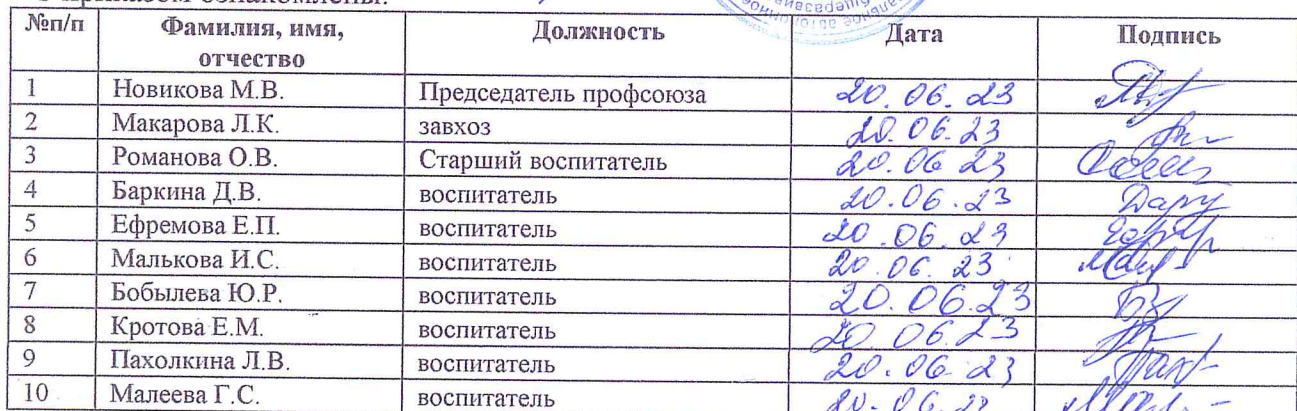 приказом ознакомлены:
№п/п Фамилия, имя, отчество Должность Дата Подпись
1 Новикова М.В. Председатель профсоюза 20.06.23
2 Макарова Л.К. завхоз 20.06.23
3 Романова О.В. Старший воспитатель 20.06.23
4 Баркина Д.В. воспитатель 20.06.23
5 Ефремова Е.П. воспитатель 20.06.23
6 Малькова И.С. воспитатель 20.06.23
7 Бобылева Ю.Р. воспитатель 20.06.23
8 Кротова Е.М. воспитатель 20.06.23
9 Пахолкина Л.В. воспитатель 20.06.23
10 Малеева Г.С. воспитатель 20.06.23